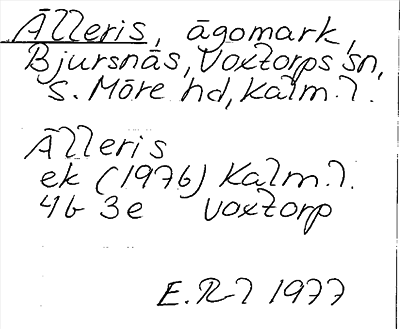 Älleris, ägomark,
Bjursnäs, Voxtorps sn,
S. Möre hd, Kalm. l.
Älleris
ek (1976) Kalm. l.
4b 3e Voxtorp
E. Rl 1977